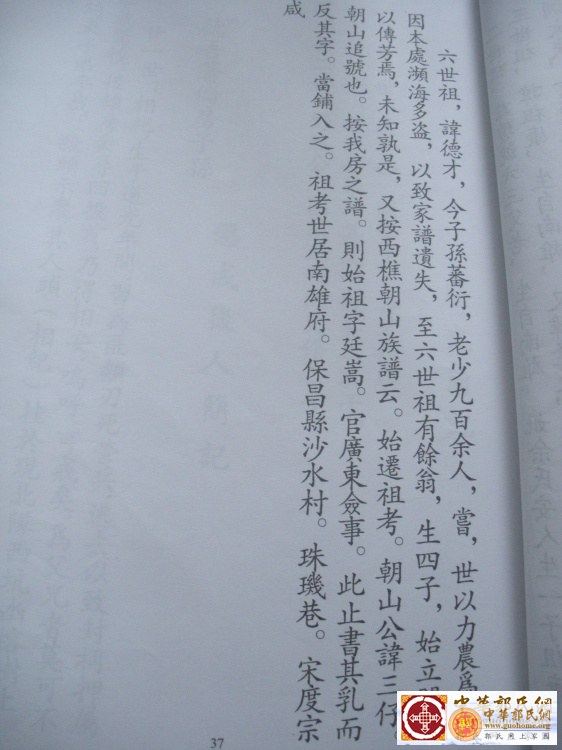 六世祖，諱德才，今子孫蕃衍，老少九百余人，嘗，世以力農爲
因本處瀕海多盗，以致家譜遺失，至六世祖有餘翁，生四子，始立
以傳芳焉，未知孰是，又按西樵朝山族譜云。始遷祖考。朝山公諱三仔
朝山追號也。按我房之譜。則始祖字廷嵩。官廣東僉事。此止書其乳而
反其字。當鋪入之。祖考世居南雄府。保昌縣沙水村。珠璣巷。宋度宗
咸
37
中華郭氏網
www.guohome.org
郭氏網上家園